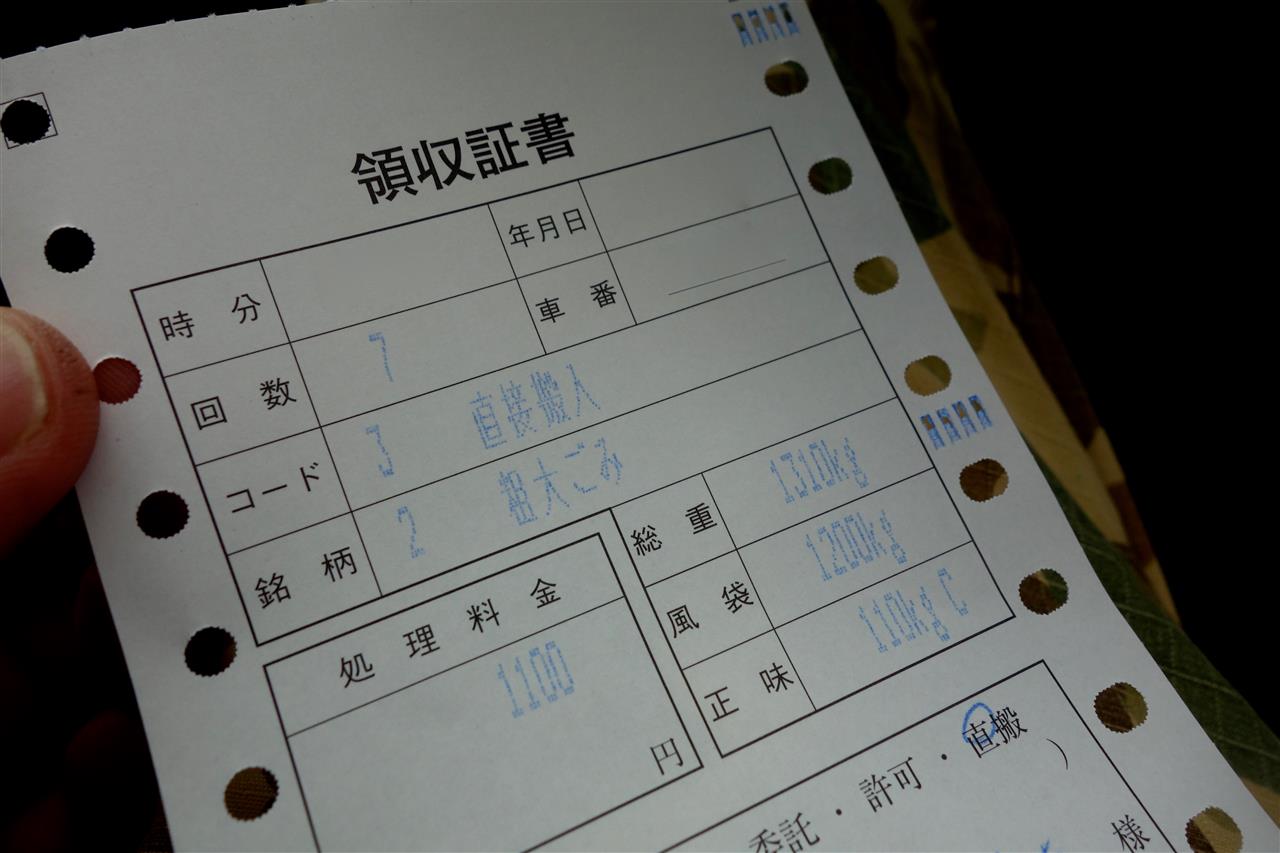 領収証書
時分 年月日
回数 7 車番
コード 3 直接搬入
銘柄 2 粗大ごみ
総重 1310kg
風袋 1200kg
正味 110kg C
処理料金
1100
円
委託・許可・直搬 )
様